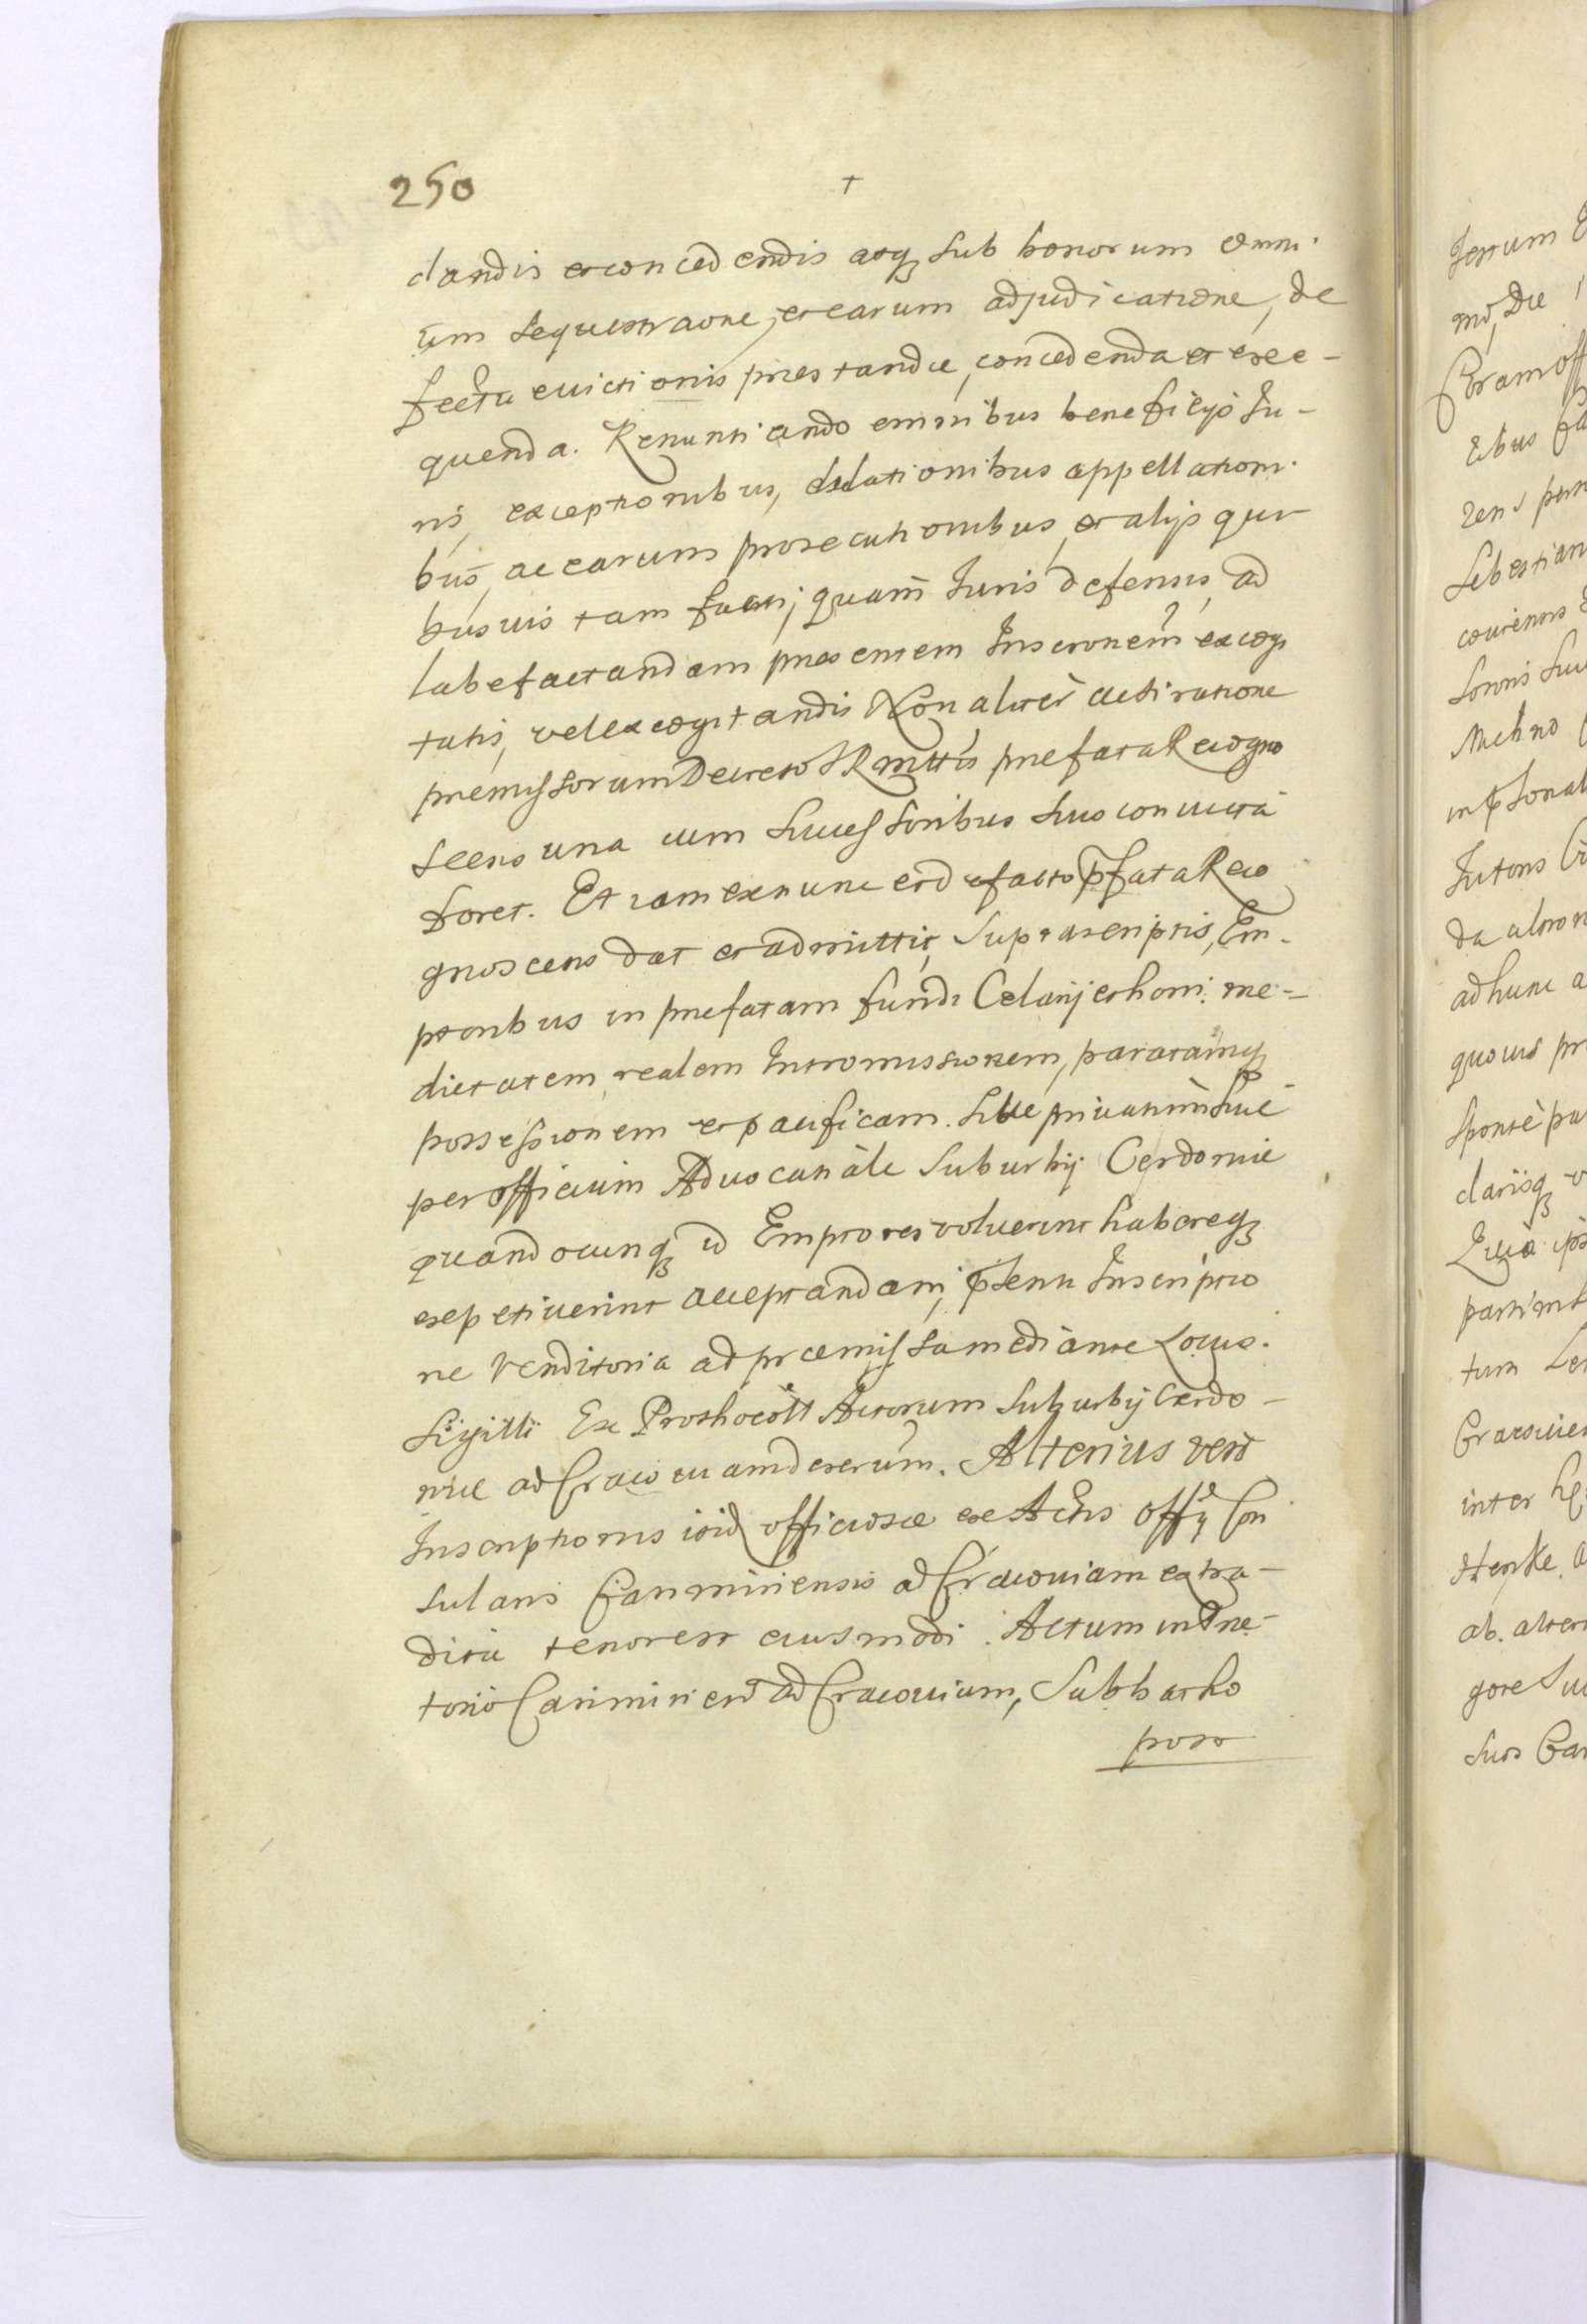 250
+
dandis et concedendis atq sub bonorum omni
um sequestraone, et earum adjudicatione, de
fectu euictionis præstandæ, concedenda et exe-
quenda. Renuntiando omnibus beneficijs Ju-
ris, exceptionibus, dilationibus appellationi
bus, ac earum prosecutionibus, et alijs qui
busuis tam facti, quam Juris defensis, ad
labefactandam præsentem Inscronem excogi
tatis, vel excogitandis Non aliter ac si ratione
præmissorum Decreto prefata Recogno
scens una cum Successoribus suis conuicta
foret. Et iam ex nunc et de facto pfata Reco
gnoscens dat et admittit, supra scriptis, Em-
ptoribus in præfatam fundi Celarij et horti me-
dietatem realem Intromissionem, paratamq
possessionem et pacificam. Siue priuatim siue
per officium Aduocatiale Suburbij Cerdoniæ
quandocunq id Emptores voluerint habereq
expetiuerint acceptandam, pñti Inscriptio
ne Venditoria ad præmissa mediante Locus.
Sigilli Ex Prothocoll Actorum Suburbij Cerdo-
niæ ad Cracouiam dexerum. Alterius vero
Inscriptionis itid officiosæ ex Actis Offij Con
sularis Casimiriensis ad Cracouiam extra-
ditæ tenor est eiusmodi. Actum in Præ-
torio Casimirien ad Cracouiam, Sabbatho
post
Ferrum
mo, Die
Coram off
sebastian
sponte
clarisq
Quia
partim
tum
inter
ab. alter
gore
suos